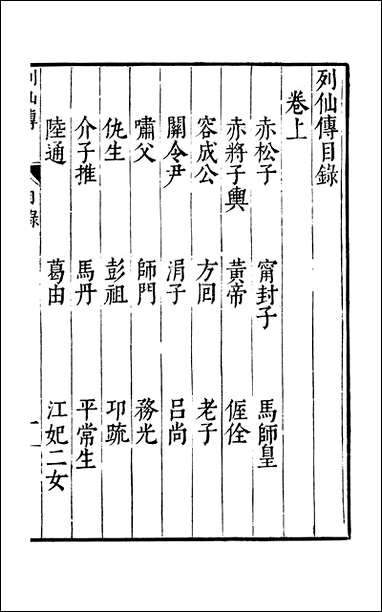 列仙傳目錄
卷上
赤松子 甯封子 馬師皇
赤將子輿 黃帝 偓佺
容成公 方回 老子
關令尹 涓子 呂尚
嘯父 師門 務光
仇生 彭祖 邛疏
介子推 馬丹 平常生
陸通 葛由 江妃二女
列仙傳 目錄 一